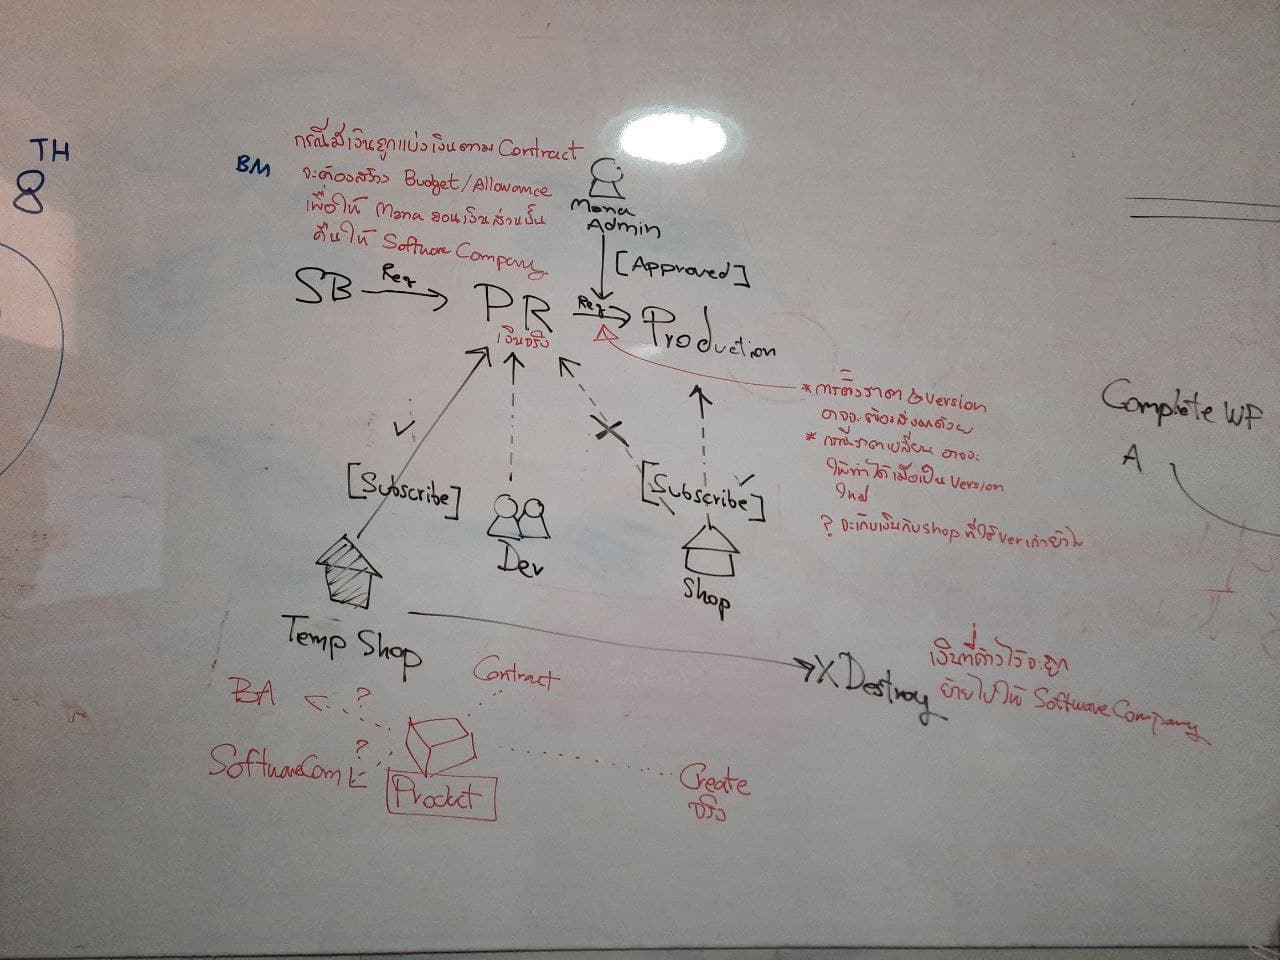 TH
8
BM
กรณีมีเงินถูกแบ่งเงินตาม Contract
จะต้องสร้าง Budget/Allowance
เพื่อให้ Mana ถอนเงินส่วนนั้น
คืนให้ Software Company
Mana
Admin
[Approved]
SB
Req
PR
เงินจริง
Req
Production
* การตั้งราคา & Version
อาจจะต้องส่งมาด้วย
* กรณีราคาเปลี่ยน อาจจะ
ให้ทำได้เมื่อเป็น Version
ใหม่
? จะเก็บเงินกับ shop ที่ใช้ ver เก่ายังไง
Complete WF
A
[Subscribe]
[Subscribe]
Dev
Shop
Temp Shop
X Destroy
เงินที่ค้างไว้จะถูก
ย้ายไปให้ Software Company
Contract
BA
?
?
SoftwareCom
Product
Create
จริง